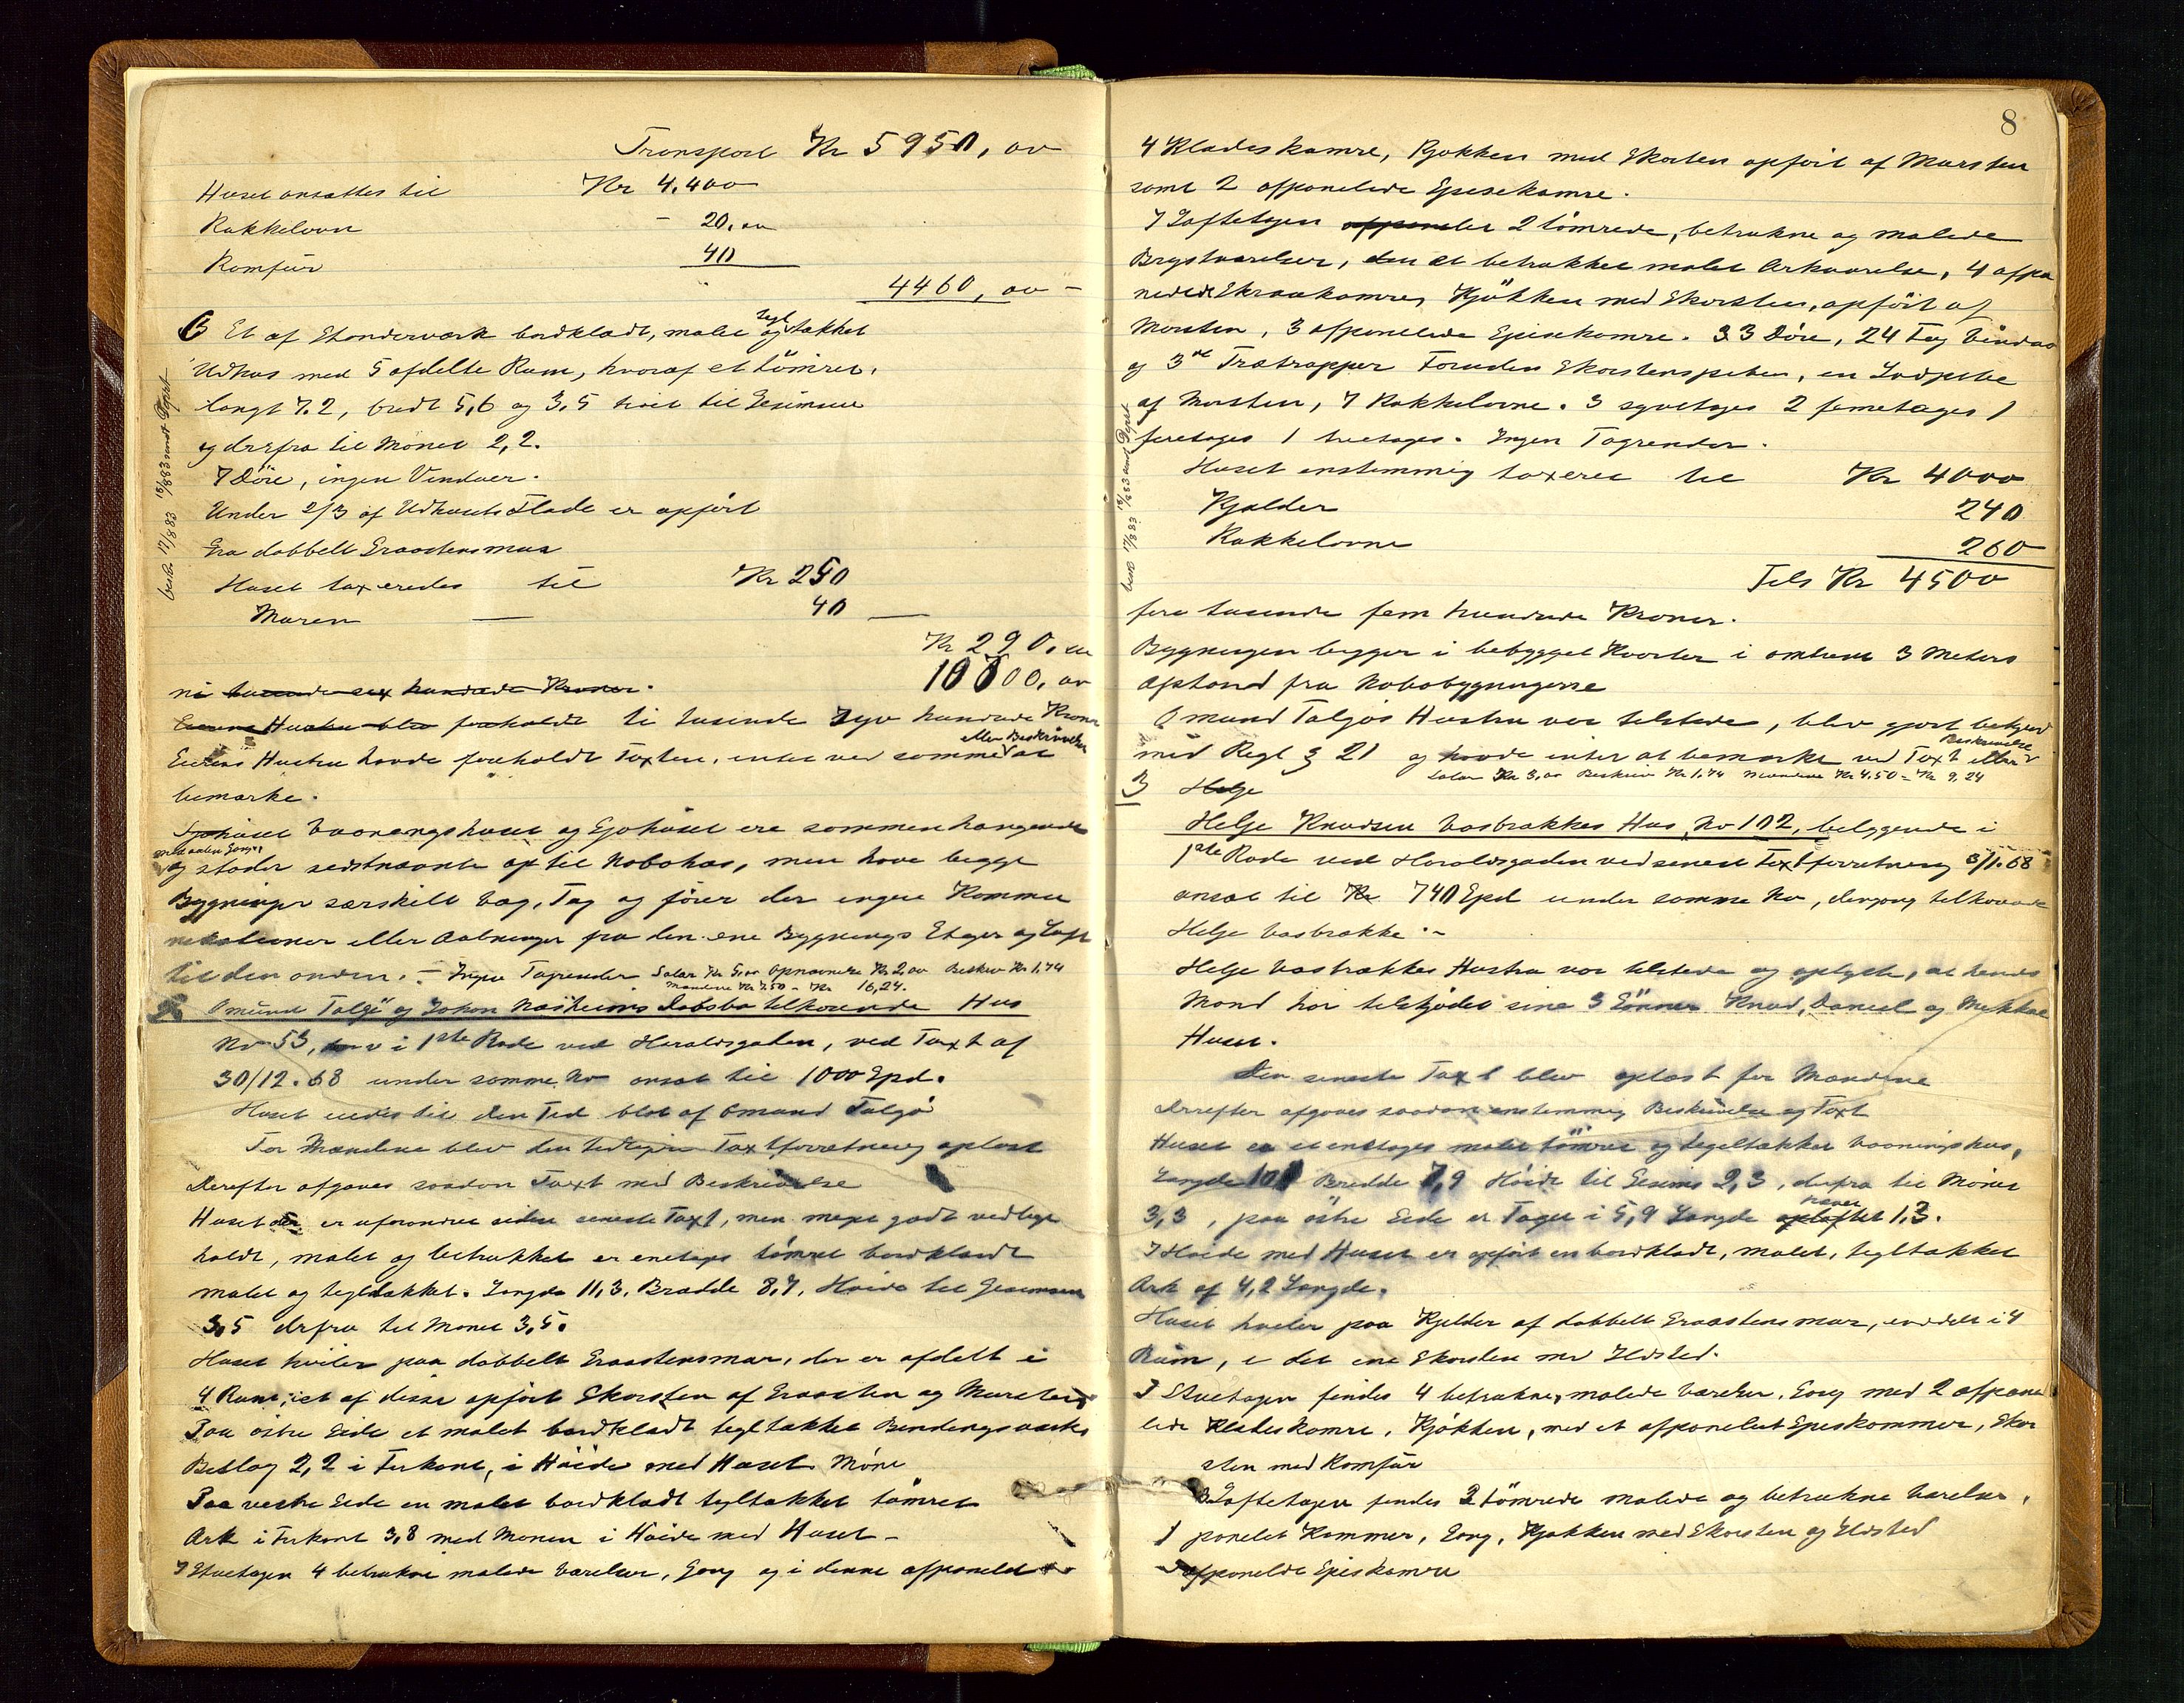 Transport Kr 5950, 00
Huset ansættes til Kr 4,400
Kakkelovn - 20,00
Komfür 40
4460, 00 -
C Et af Standerværk bordklædt, malet og tegl tækket
Udhus med 5 afdelte Rum, hvoraf et tömret,
langt 7.2, bredt 5,6 og 3,5 höit til Gesimsen
og derfra til Mönet 2,2.
7 Döre, ingen Vinduer.
Under 2/3 af Udhusets Flade er opført
Graa dobbelt Graastensmur
Huset taxeredes til Kr 250
Muren — 40 —
Kr 290, 00
10700, 00
ni tusende sex hundrede Kroner.
Eierens Hustru blev foreholdt ti tusende syv hundrede Kroner
Eierens Hustru havde foreholdt Taxten, intet ved samme eller Beskrivelsen at
bemærke.
Sjöhuset Vaaningshuset og Sjöhuset ere sammenhængende
med aaben Gang,
og støder sidstnævnte op til Nabohus, men have begge
Bygninger særskilt Væg, Tag og fører der ingen Kommu
nikationer eller Aabninger fra den ene Bygnings Etager og Loft
til den anden. - Ingen Tagrender. Salær Kr 5,00 Opnævnelse Kr 2,00 Beskriv Kr 1,74
Mændene Kr 7.50 - Kr 16,24.
2 Omund Talgö og Johan Næsheims Dødsbo tilhørende Hus
No 53, i 1ste Rode ved Haraldsgaden, ved Taxt af
30/12.68 under samme No ansat til 1000 Spd.
Huset eiedes til den Tid blot af Omund Talgö
For Mændene blev den tidligere Taxtforretning oplæst
Derefter afgaves saadan Taxt med Beskrivelse
Huset er uforandret siden seneste Taxt, men meget godt vedlige
holdt, malet og betrukket er enetages tömret bordklædt
malet og tegltækket. Længde 11,3, Bredde 8,7, Høide til Gesimsen
3,5 derfra til Mönet 3,5.
Huset hviler paa dobbelt Graastensmur, der er afdelt i
4 Rum, i et af disse opført Skorsten af Graasten og Mursten,
Paa östre Side et malet bordklædt tegltækket Bindingsværks
Bislag 2,2 i Firkant, i Höide med Huset Möne
Paa vestre Side en malet bordklædt tegltækket tömret
Ark i Firkant 3,8 med Mönen i Höide med Huset -
I Stuetagen 4 betrukne malede Værelser, Gang og i denne afpanelede
besk. 17/8 83 18/8 83 Dyset
8
4 Klædeskamre, Kjøkken med Skorsten opført af Mursten
samt 2 afpanelede Spisekamre.
I Loftetagen 2 tömrede, betrukne og malede
Brystværelser, et betrukket malet Arkværelse, 4 afpa
nelede Skraakamre, Kjökken med Skorsten, opfört af
Mursten, 3 afpanelede Spisekamre. 33 Döre, 24 Fag Vinduer
og 3de Trætrapper Foruden Skorstenspiben, en Lodpibe
af Mursten, 7 Kakkelovne. 3 syvetages 2 femetages 1
firetages 1 treetages. Ingen Tagrender.
Huset enstemmig taxeret til Kr 4000
Kjælder 240
Kakkelovne 260
Tils Kr 4500
fire tusende fem hundrede Kroner.
Bygningen ligger i bebygget Kvarter i omtrent 3 Meters
Afstand fra Nabobygningerne
Omund Talgös Hustru var tilstede, blev gjort bekjendt
med Regl § 21 og havde intet at bemærke ved Taxt eller Beskrivelse
Salær Kr 3,00 Beskriv Kr 1.74 Mændene Kr 4.50 - Kr 9,24
3 Helge
Helge Knudsen Vasbrækkes Hus No 102, beliggende i
1ste Rode ved Haraldsgaden ved seneste Taxtforretning 3/1.68
ansat til 740 Spd under samme No, dengang tilhørende
Helge Vasbrække.-
Helge Vasbrækkes Hustru var tilstede og oplyste, at hendes
Mand har tilskjødet sine 3 Sönner Knud, Daniel og Mikkal
Huset.
Den seneste Taxt blev oplæst for Mændene
Derefter afgaves saadan enstemmig Beskrivelse og Taxt
Huset er et enetages malet tömret og tegltækket Vaaningshus,
Længde 10, Bredde 7,9 Höide til Gesims 2,3, derfra til Mönet
3,3, paa östre Side er Taget i 5,9 Længde opløftet hævet 1,3.
I Höide med Huset er opført en bordklædt, malet, tegltækket
Ark af 4,2 Længde.
Huset hviler paa Kjelder af dobbelt Graastensmur, inddelt i 4
Rum, i det ene Skorsten med Ildsted.
I Stuetagen findes 4 betrukne, malede Værelser, Gang med 2 afpane
lede Klædeskamre, Kjökken, med et afpanelet Spiskammer, Skor
sten med Komfür
I Loftetagen findes 3 tömrede malede og betrukne Værelser,
1 panelet Kammer, Gang, Kjøkken med Skorsten og Ildsted
afpanelede Spiskamre
besk 17/8 83 18/8 83 Dyset